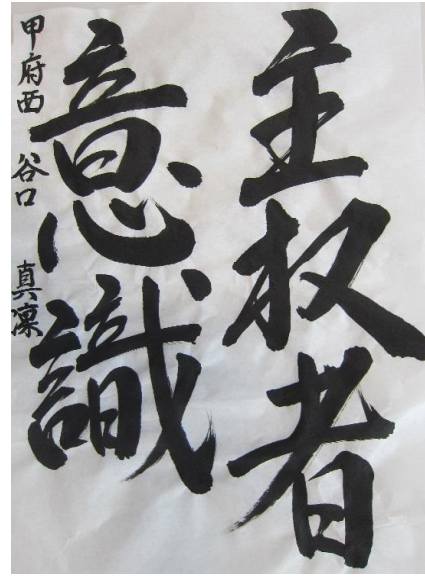 主权者
意識
甲府西 谷口 真凜